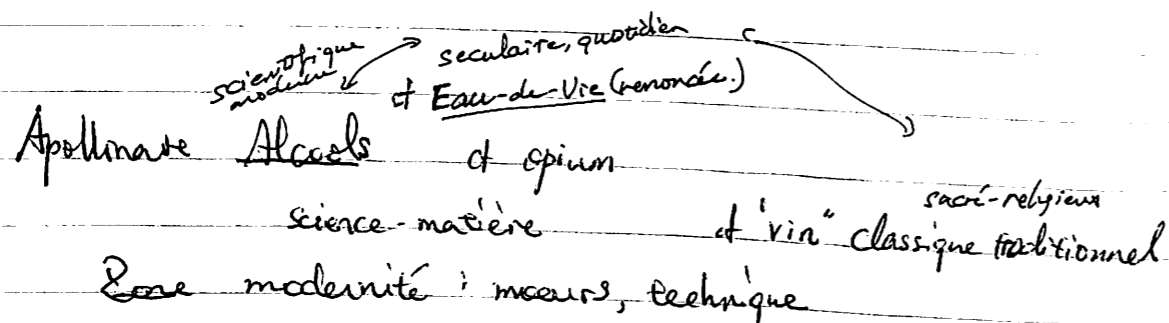 scientifique
moderne
seculaire, quotidien
cf Eau-de-Vie (renoncée.)
Apollinaire Alcools cf opium
sacré-religieux
science-matière cf "vin" classique traditionnel
Zone modernité : mœurs, technique